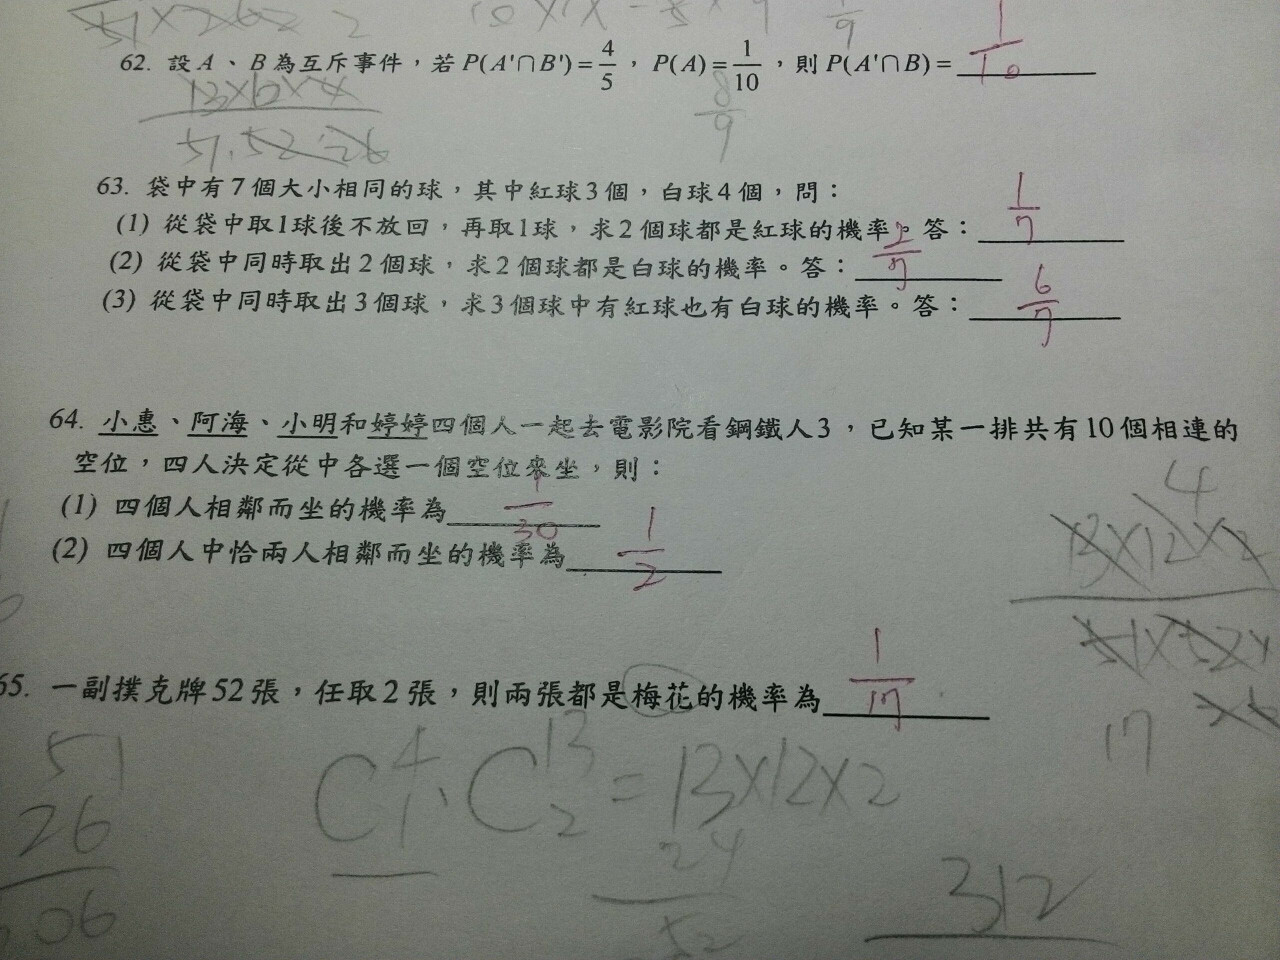 62. 設A、B為互斥事件，若P(A'∩B')=4/5，P(A)=1/10，則P(A'∩B)= 1/10
13×12×4
51.52.26
8/9
63. 袋中有7個大小相同的球，其中紅球3個，白球4個，問：
(1) 從袋中取1球後不放回，再取1球，求2個球都是紅球的機率。答： 1/7
(2) 從袋中同時取出2個球，求2個球都是白球的機率。答： 2/7
(3) 從袋中同時取出3個球，求3個球中有紅球也有白球的機率。答： 6/7
64. 小惠、阿海、小明和婷婷四個人一起去電影院看鋼鐵人3，已知某一排共有10個相連的
空位，四人決定從中各選一個空位來坐，則：
(1) 四個人相鄰而坐的機率為 1/30
(2) 四個人中恰兩人相鄰而坐的機率為 1/2
4
13×12×2
17
65. 一副撲克牌52張，任取2張，則兩張都是梅花的機率為 1/17
51
26
06
C 4 1 . C 13 2 = 13×12×2
24
52
312